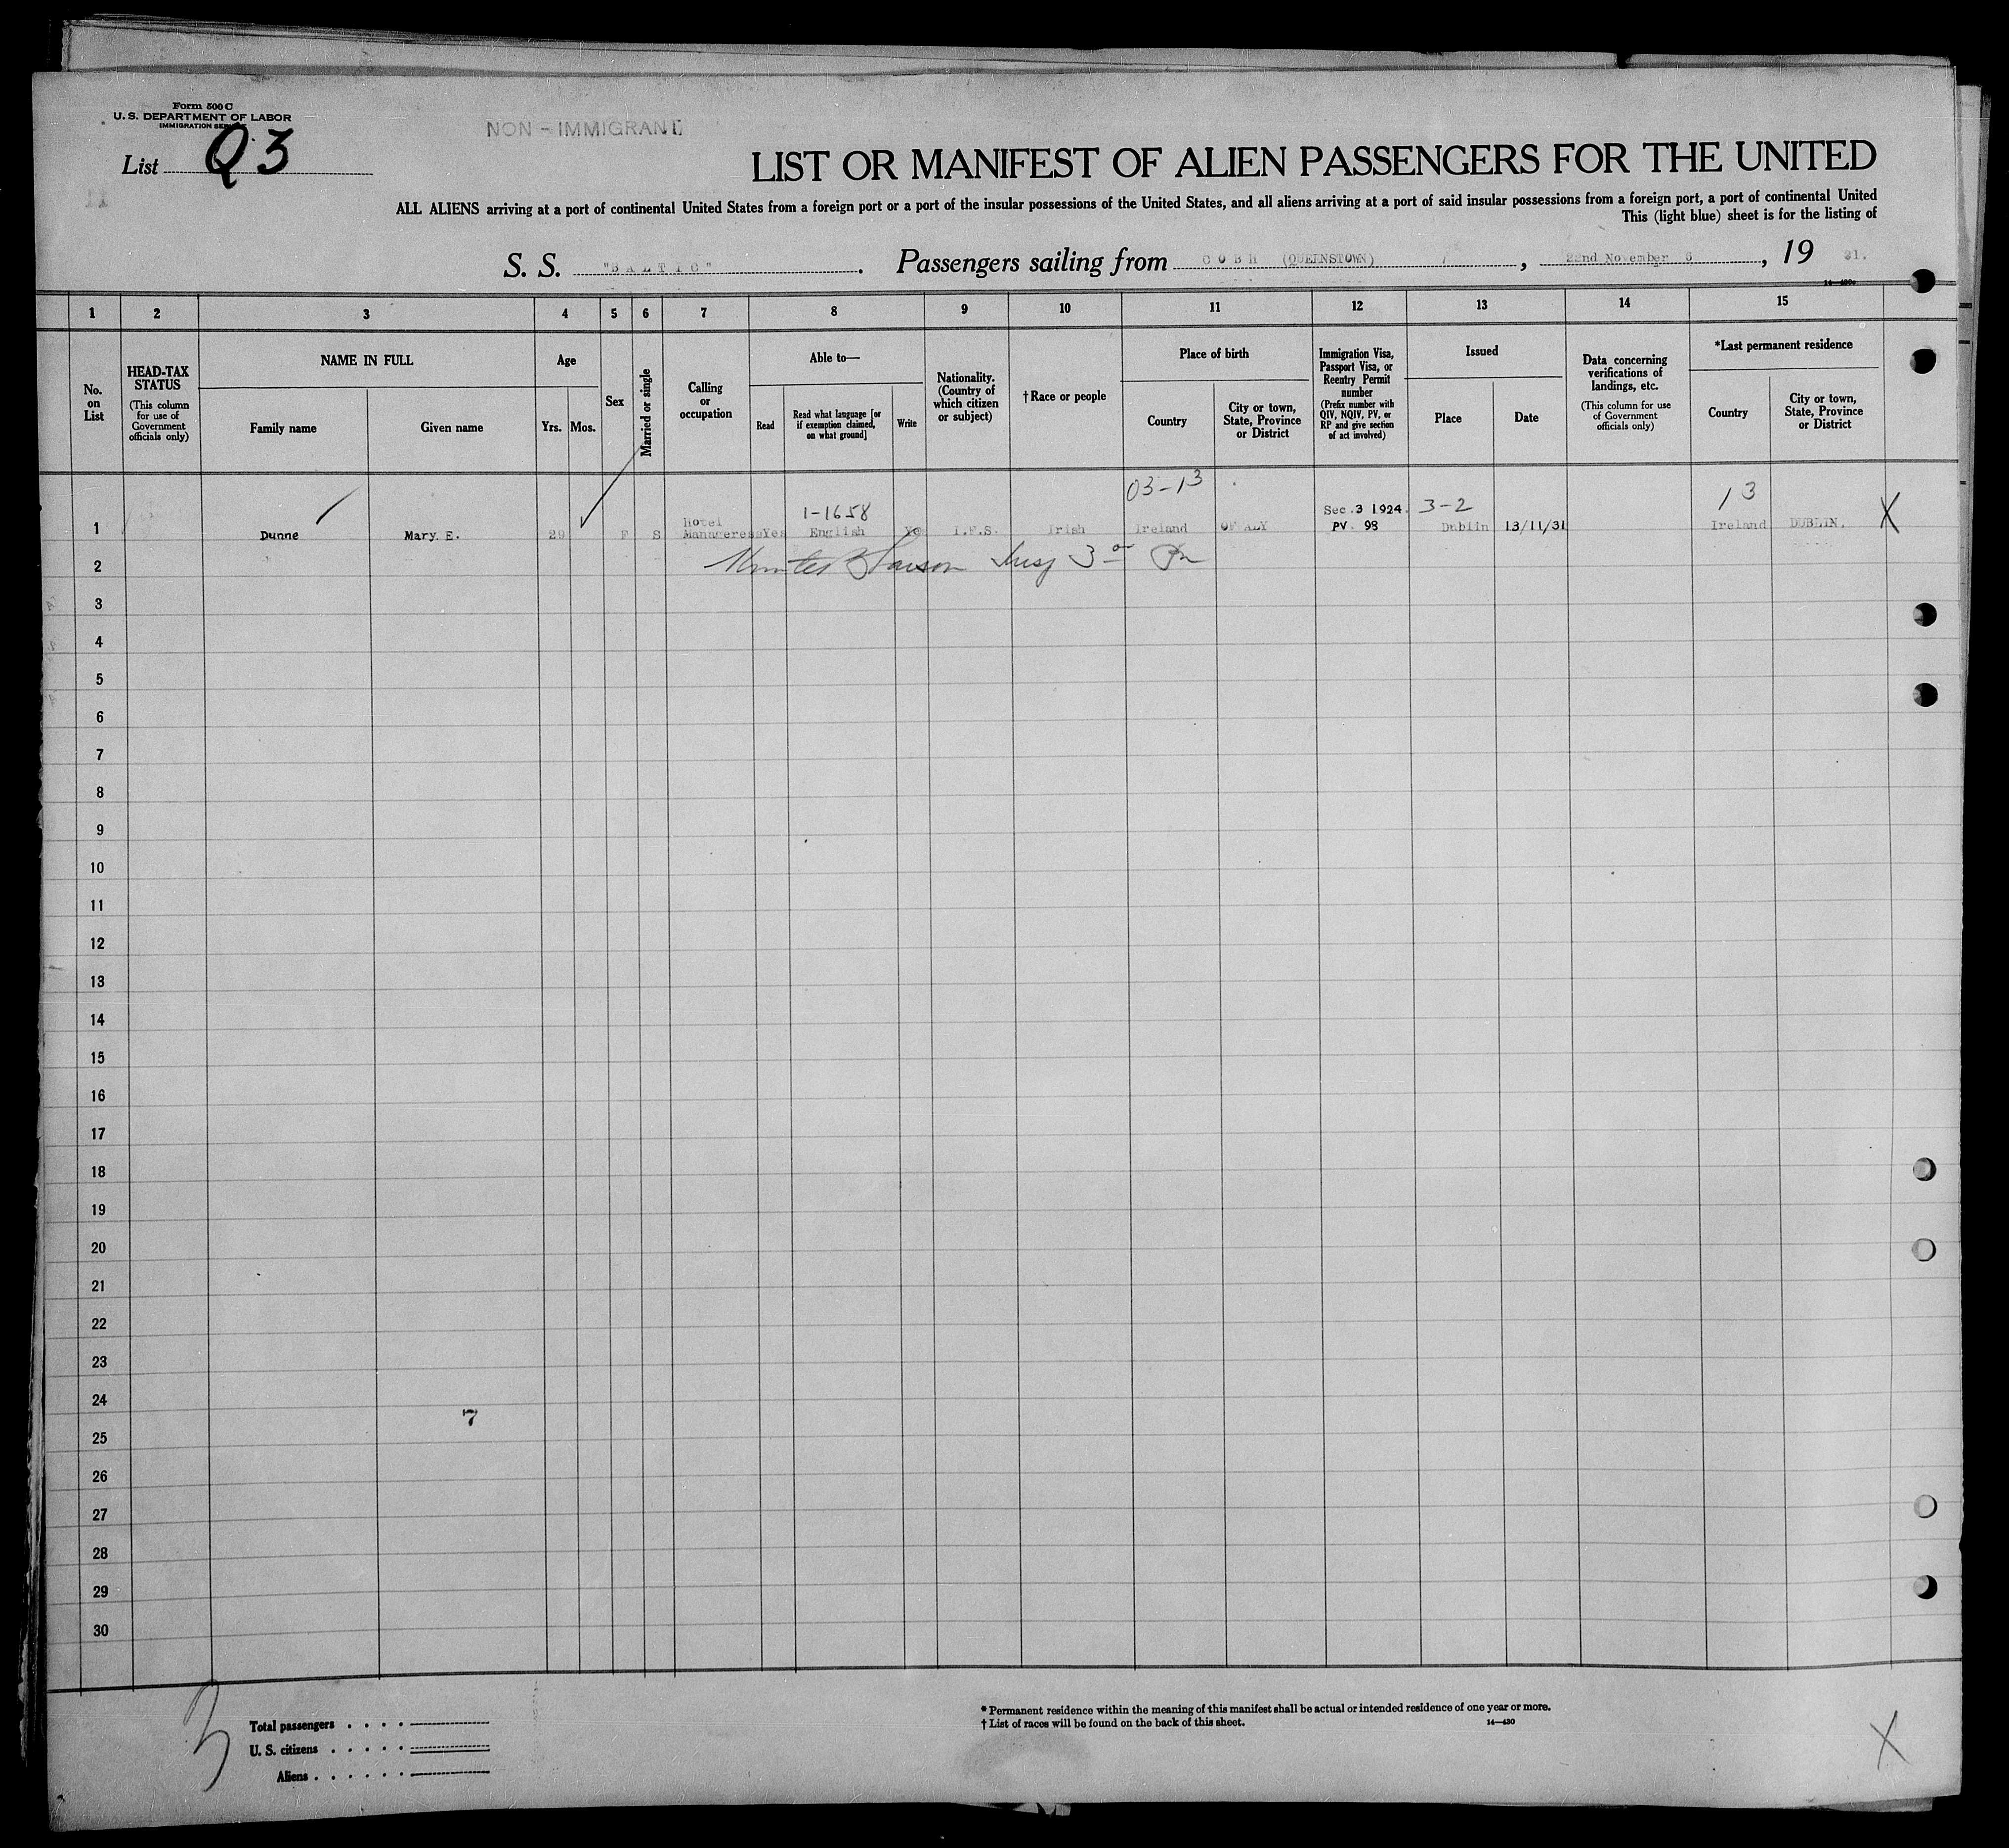 Form 500 C
U. S. DEPARTMENT OF LABOR
IMMIGRATION SERVICE
NON - IMMIGRANT
List Q3
LIST OR MANIFEST OF ALIEN PASSENGERS FOR THE UNITED
ALL ALIENS arriving at a port of continental United States from a foreign port or a port of the insular possessions of the United States, and all aliens arriving at a port of said insular possessions from a foreign port, a port of continental United
This (light blue) sheet is for the listing of
S. S. "BALTIC". Passengers sailing from COBH (QUEENSTOWN), 22nd November, 19 31.
1 2 3 4 5 6 7 8 9 10 11 12 13 14 15
No. on List
HEAD-TAX STATUS (This column for use of Government officials only)
NAME IN FULL
Family name Given name
Age
Yrs. Mos.
Sex
Married or single
Calling or occupation
Able to—
Read
Read what language [or if exemption claimed, on what ground]
Write
Nationality. (Country of which citizen or subject)
†Race or people
Place of birth
Country
City or town, State, Province or District
Immigration Visa, Passport Visa, or Reentry Permit number (Prefix number with QIV, NQIV, PV, or RP and give section of act involved)
Issued
Place Date
Data concerning verifications of landings, etc. (This column for use of Government officials only)
*Last permanent residence
Country
City or town, State, Province or District
03-13
1-1658 Sec. 3 1924. 3-2 13
Hotel
1 Dunne Mary. E. 29 F S Manageress Yes English Yes I.F.S. Irish Ireland PV. 98 Dublin 13/11/31 Ireland DUBLIN. X
2
3
4
5
6
7
8
9
10
11
12
13
14
15
16
17
18
19
20
21
22
23
24
7
25
26
27
28
29
30
3
Total passengers
U. S. citizens
Aliens
* Permanent residence within the meaning of this manifest shall be actual or intended residence of one year or more.
† List of races will be found on the back of this sheet. 14—430
X